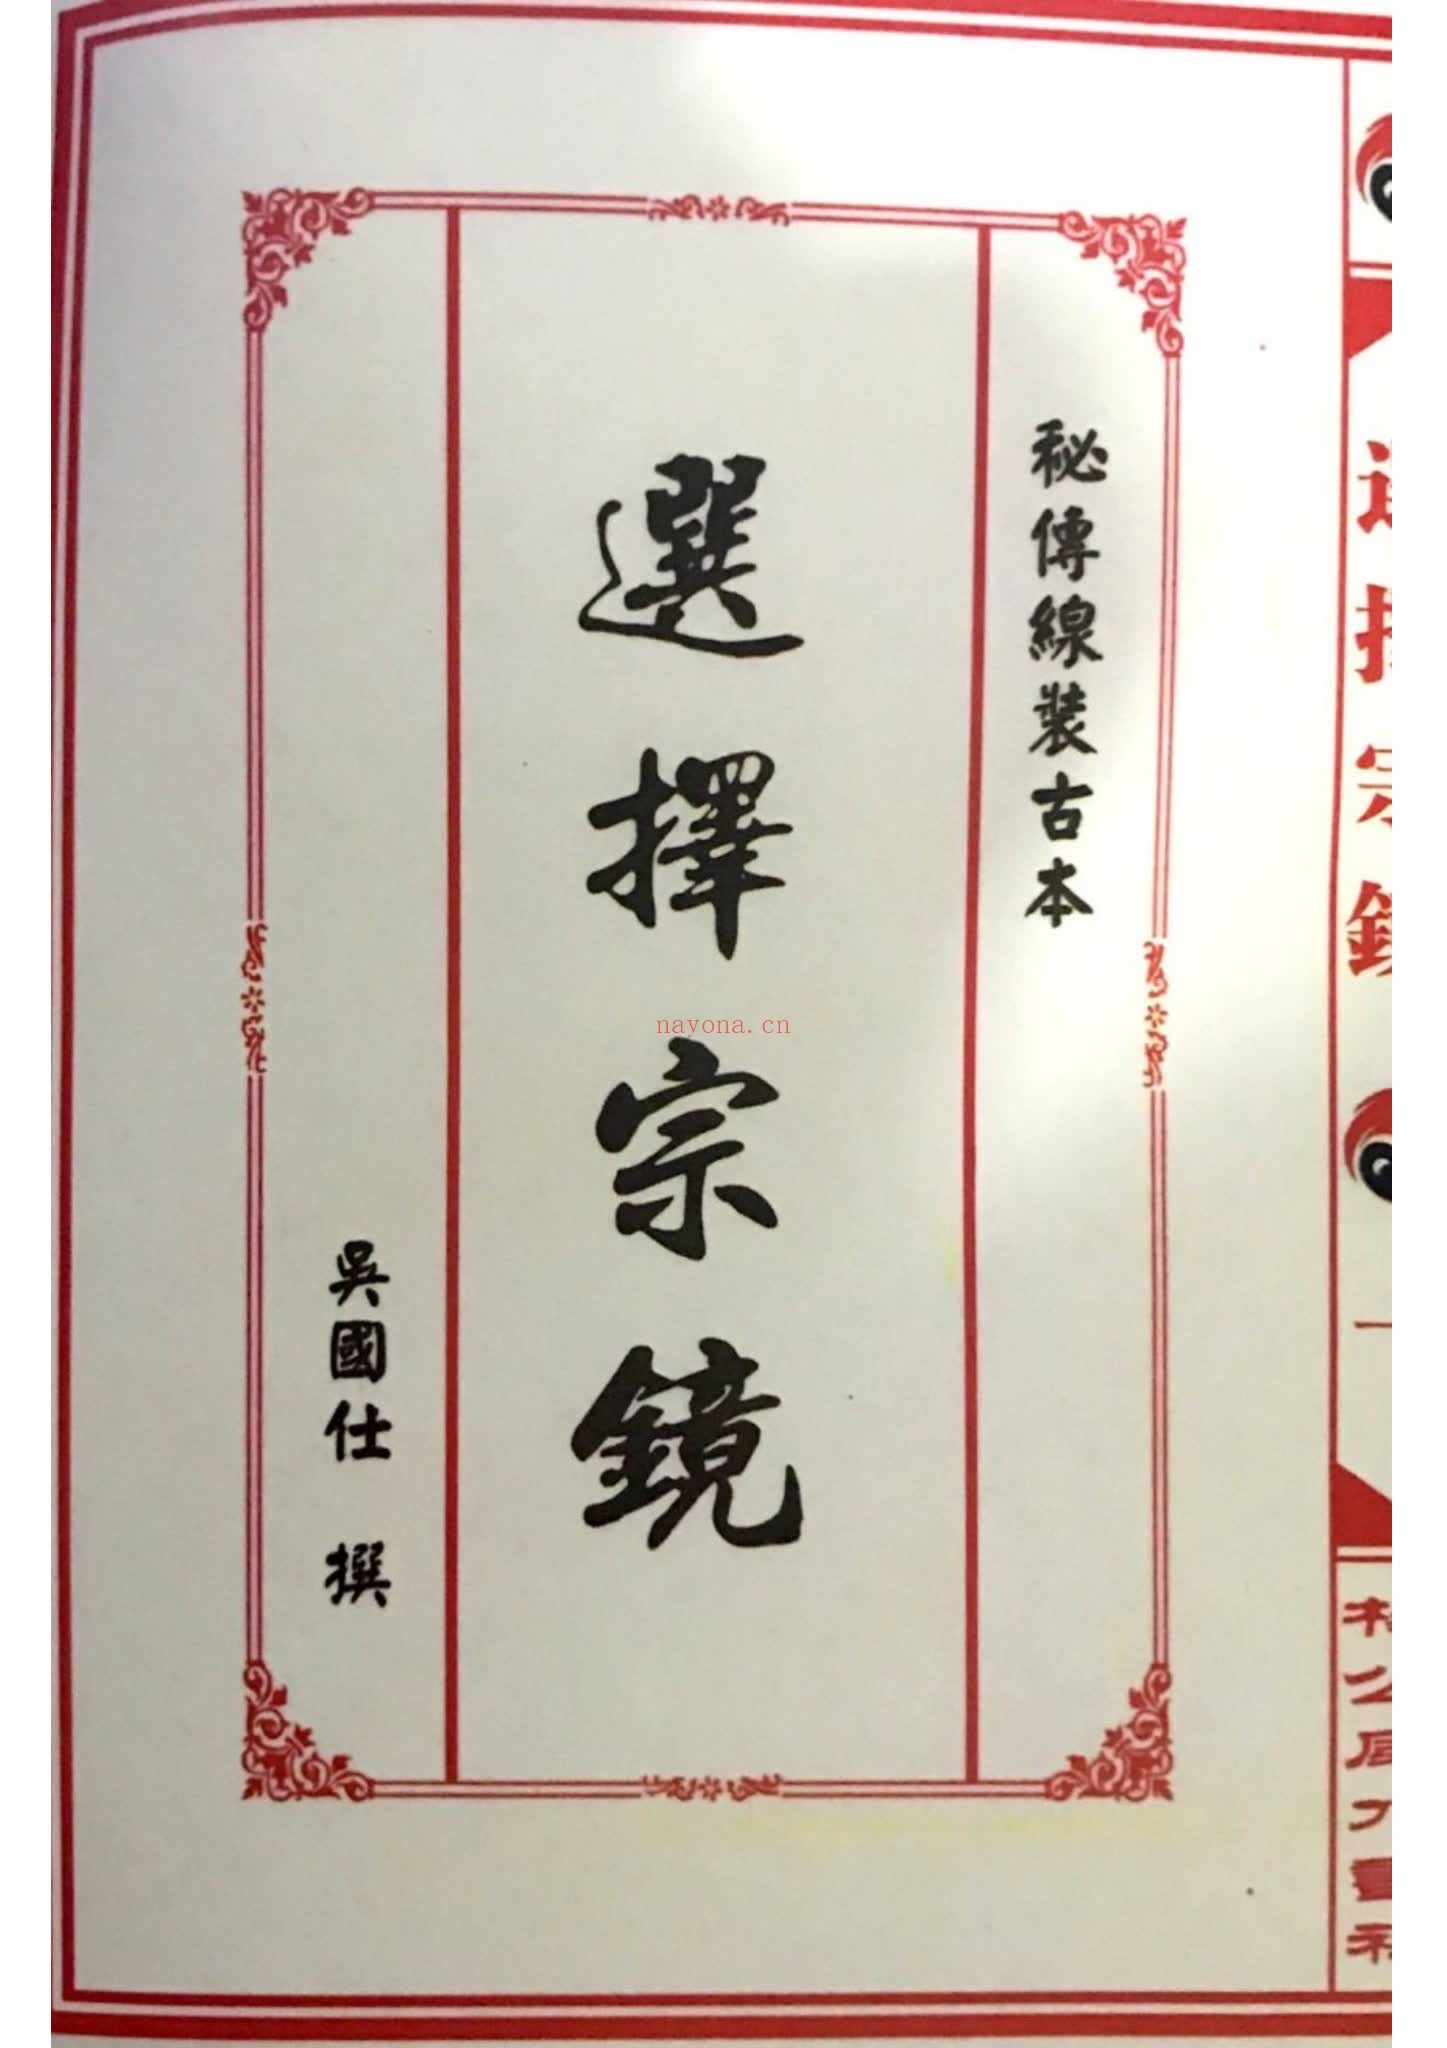 秘傳線裝古本
選擇宗鏡
吳國仕 撰
nayona.cn